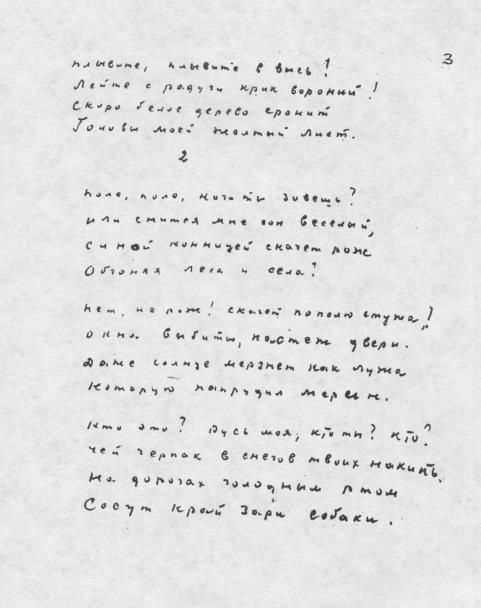 3
плывите, плывите в высь!
Лейте с радуги крик вороний!
Скоро белое дерево сронит
Головы моей желтый лист.
2
поле, поле, кого ты зовешь?
или снится мне сон веселый,
синей конницей скачет рожь
Обгоняя леса и села?
нет, не рожь! скачет по полю стужа,
окна выбиты, настежь двери.
Даже солнце мерзнет как лужа
которую напрудил мерин.
кто это? Русь моя, кто ты? кто?
чей черпак в снегов твоих накипь.
на дорогах голодным ртом
Сосут край зари собаки.